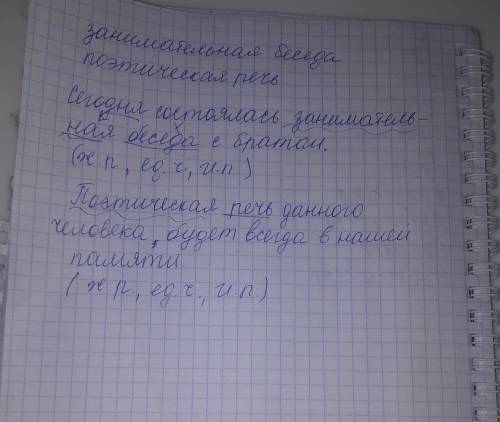 занимательная беседа
поэтическая речь
Сегодня состоялась заниматель-
ная беседа с братом.
(ж.р., ед.ч., и.п.)
Поэтическая речь данного
человека, будет всегда в нашей
памяти.
(ж.р., ед.ч., и.п.)